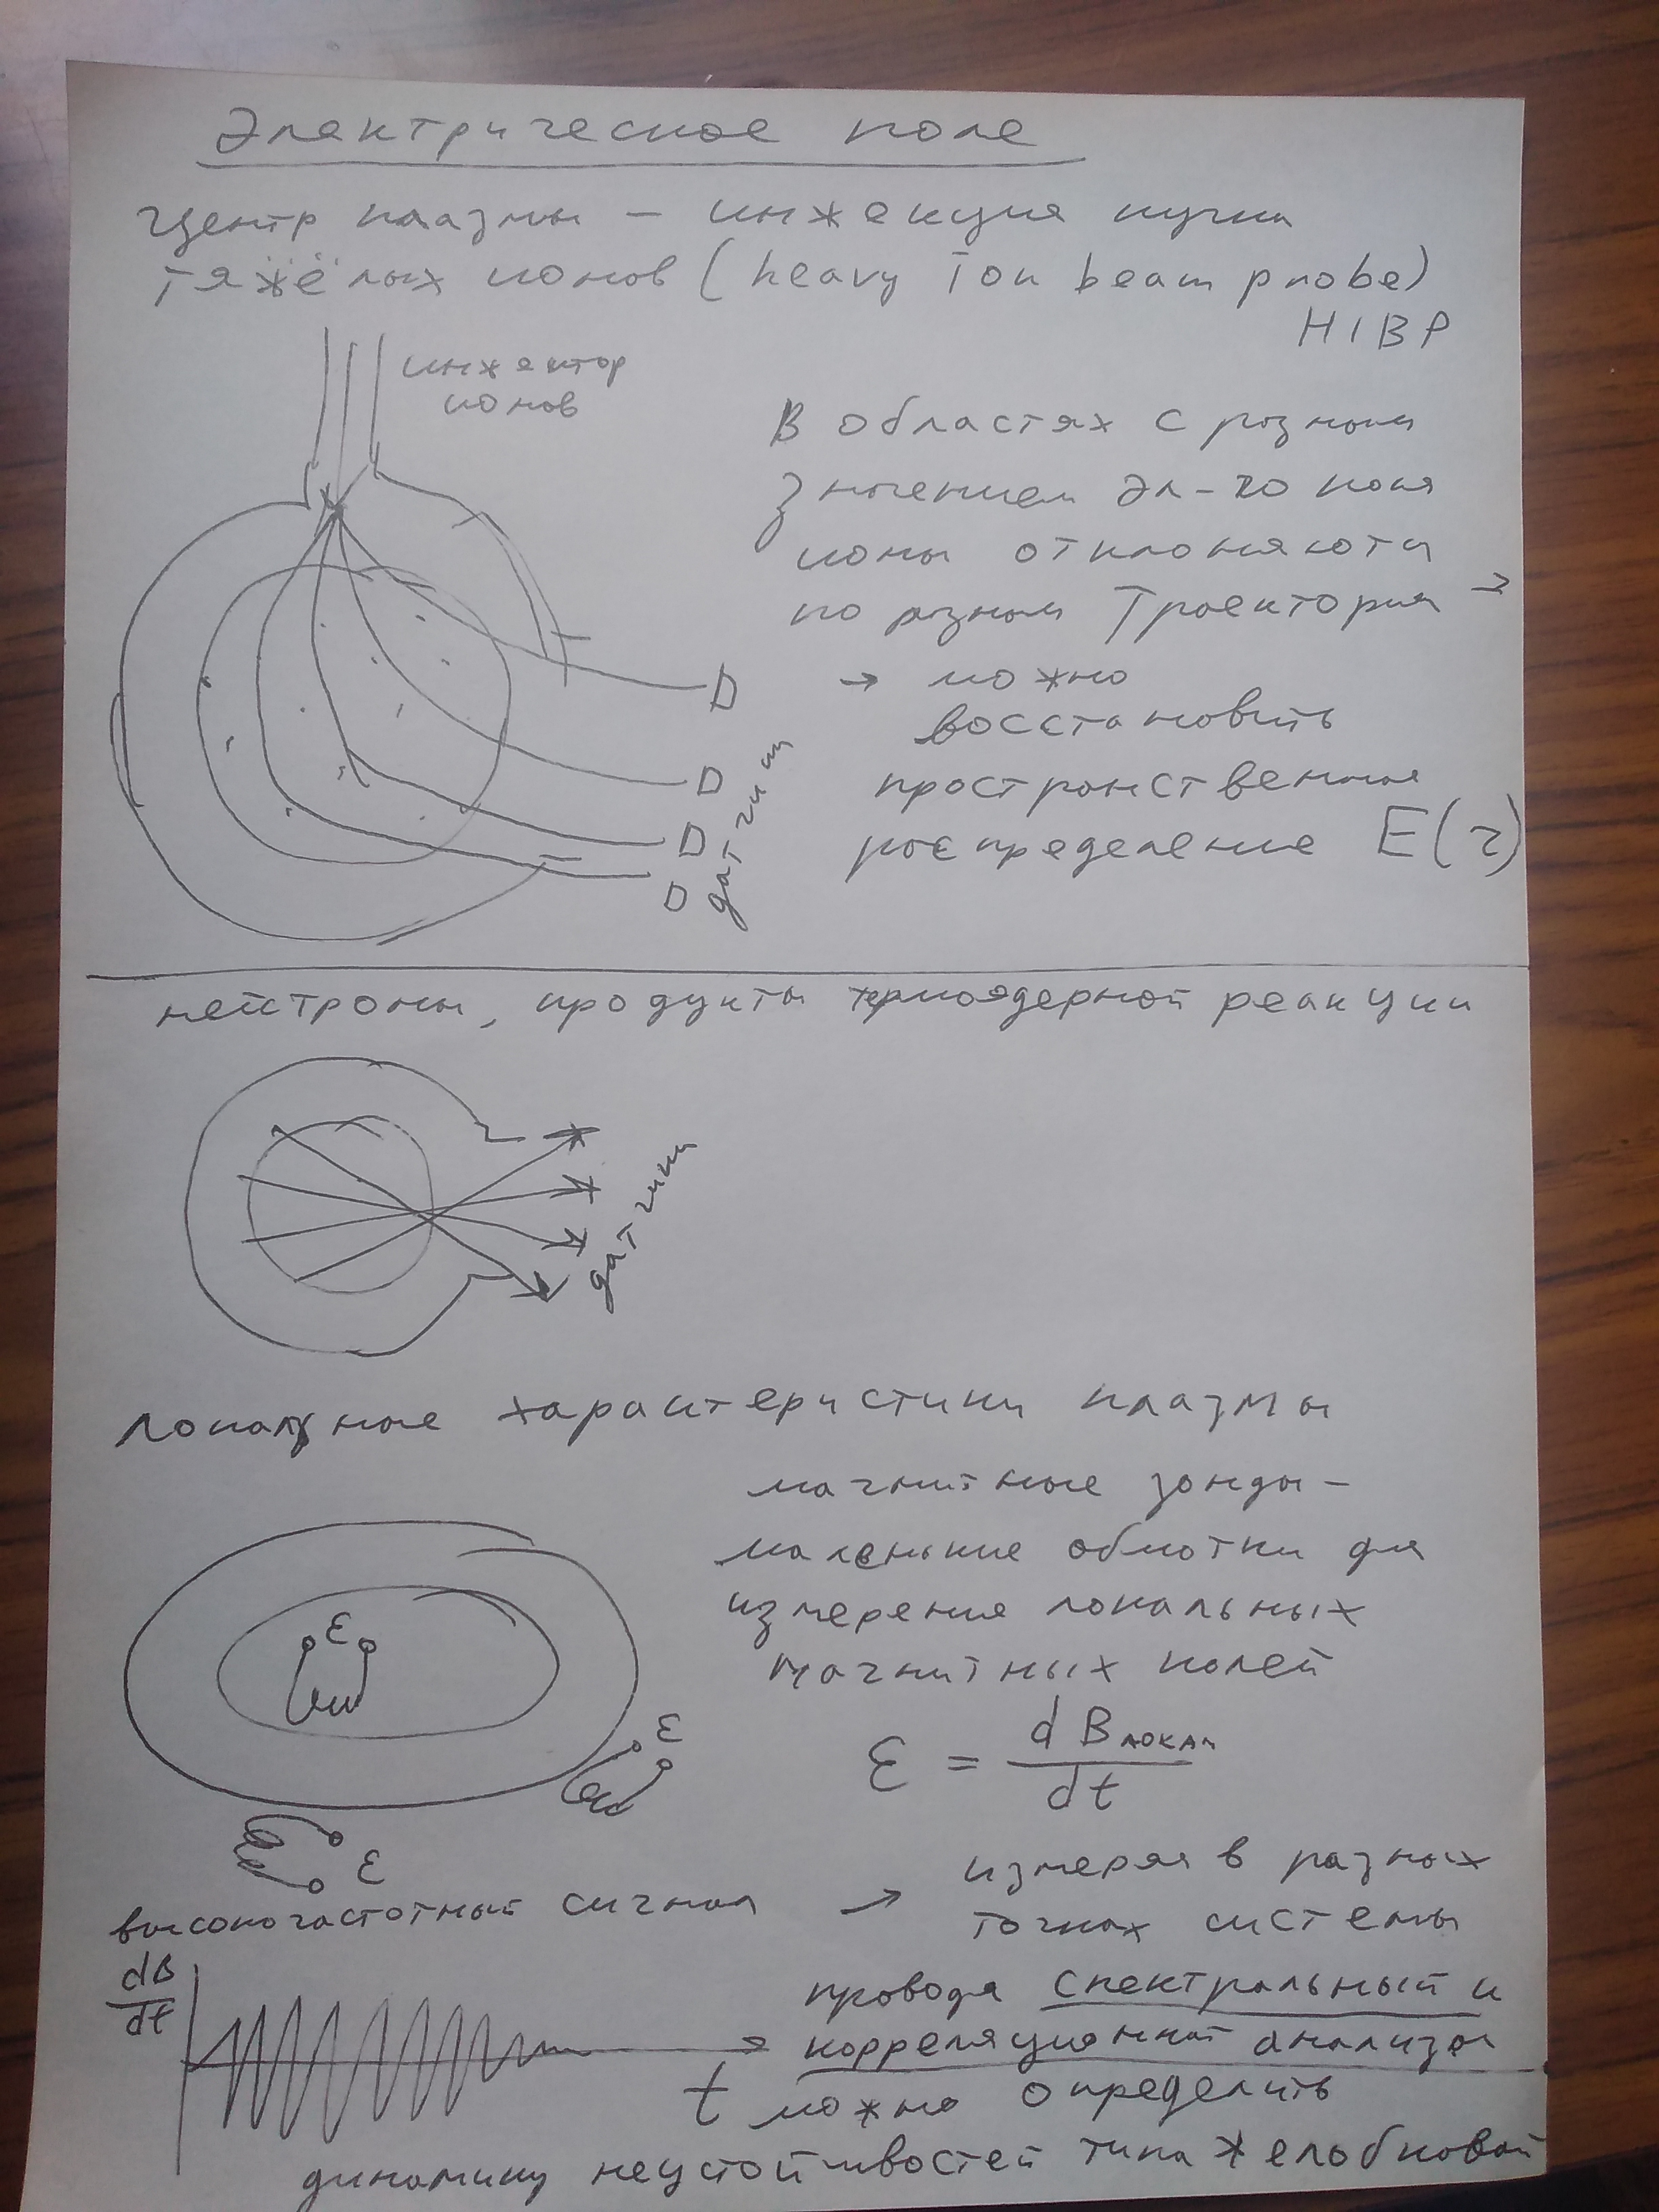 Электрическое поле
Центр плазмы – инжекция пучка
тяжёлых ионов (heavy Ion beam probe)
HIBP
инжектор
ионов
В областях с разным
значением эл-го поля
ионы отклоняются
по разным траектория →
→ можно
восстановить
пространственное
распределение E(r)
D
D
D
D
датчики
нейтроны, продукты термоядерной реакции
датчики
локальные характеристики плазмы
магнитные зонды –
маленькие обмотки для
измерения локальных
магнитных полей
ε
ε
ε
ε = dBлокал/dt
высокочастотный сигнал → измеряя в разных
точках системы
dB/dt
t
проводя спектральный и
корреляционный анализы
можно определить
динамику неустойчивостей типа желобковой